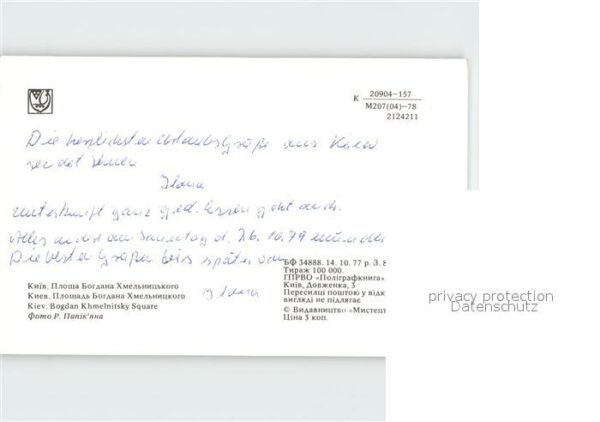 К 20904-157
М207(04)-78
2124211
Die herzlichsten Urlaubsgrüße aus Kiew
sendet Ihnen
Ilona
Unterkunft ganz gut. Essen geht auch.
Alles andere am Sonntag d. 26. 10. 79
Die besten Grüße bis später von
Ilona
Київ. Площа Богдана Хмельницького
Киев. Площадь Богдана Хмельницкого
Kiev. Bogdan Khmelnitsky Square
Фото Р. Папік'яна
БФ 34888. 14. 10. 77 р. З. 8
Тираж 100 000.
ГПРВО «Поліграфкнига»
Київ, Довженка, 3
Пересилці поштою у відк
вигляді не підлягає
© Видавництво «Мистецт
Ціна 3 коп.
privacy protection
Datenschutz